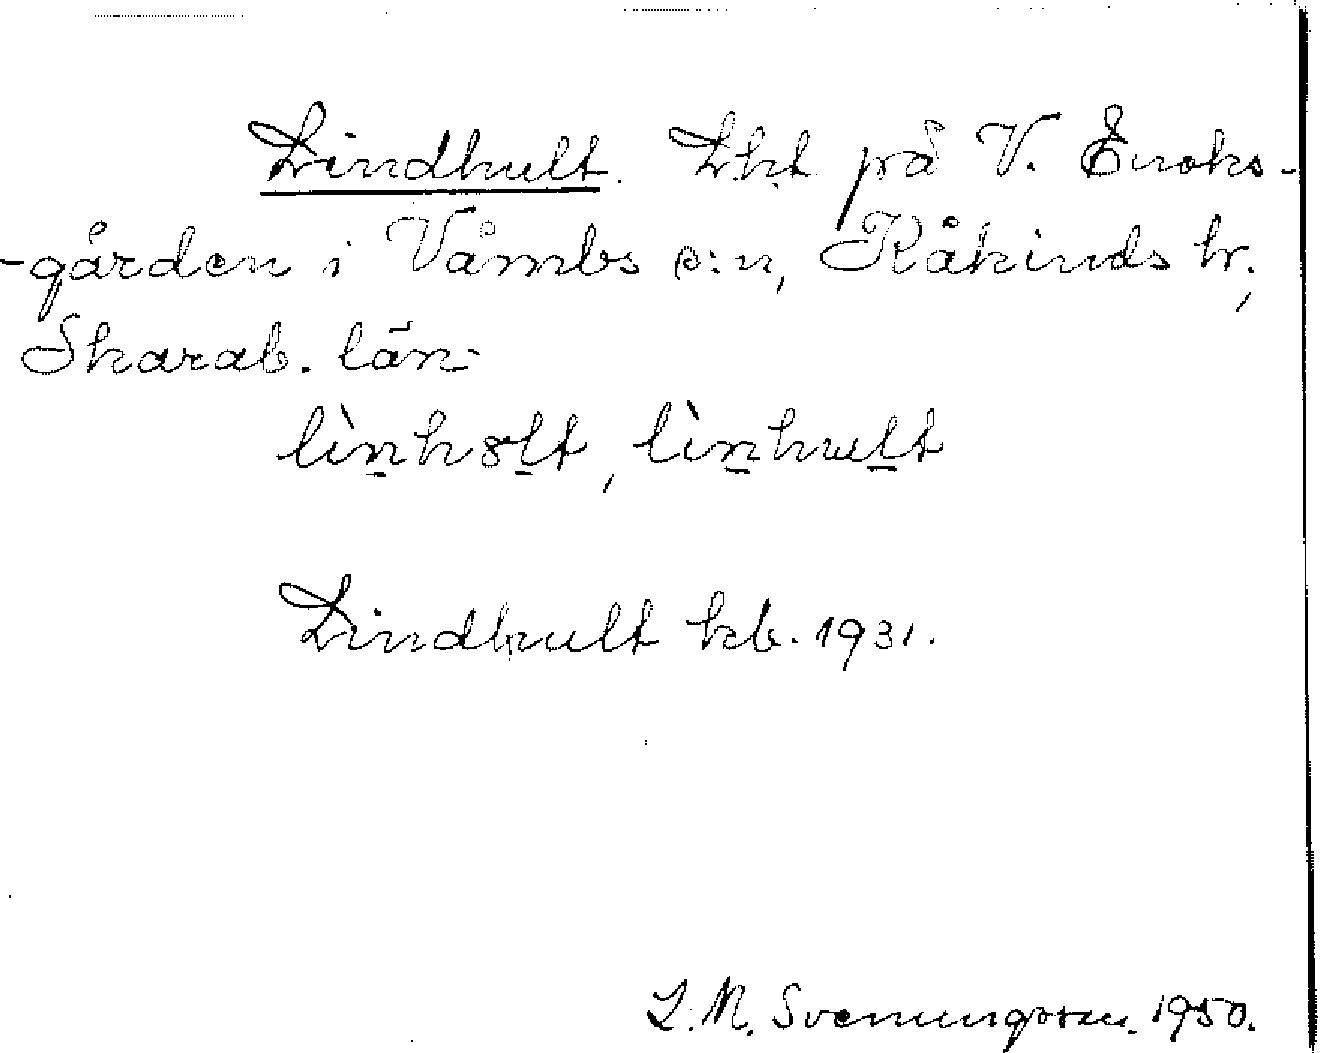 Lindhult. Lht på V. Enoks-
-gården i Våmbs s:n, Kåkinds hr,
Skarab. län
lìnhält, lìnhult
Lindhult kb. 1931.
L. M. Svenungsson. 1950.